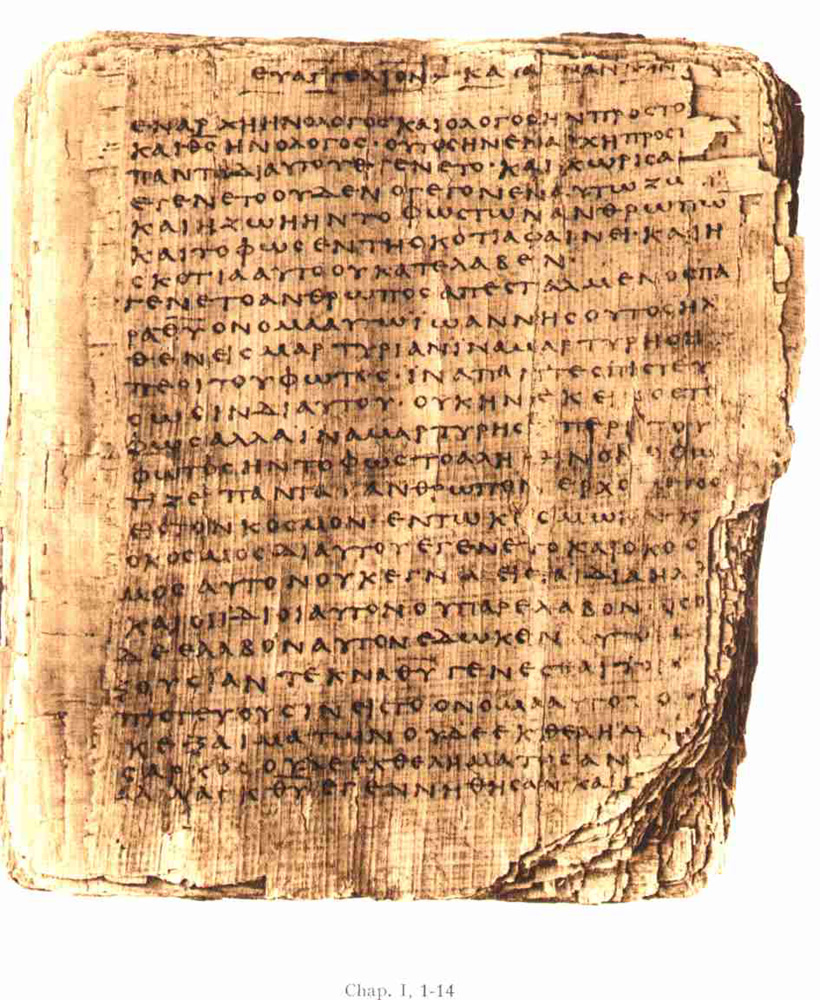 ΕΥΑΓΓΕΛΙΟΝ ΚΑΤΑ
ΕΝΑΡΧΗΗΝΟΛΟΓΟΣΚΑΙΟΛΟΓΟΣΗΝΠΡΟΣΤΟ
ΚΑΙΘΣΗΝΟΛΟΓΟΣ·ΟΥΤΟΣΗΝΕΝΑΡΧΗΠΡΟΣ
ΠΑΝΤΑΔΙΑΥΤΟΥΕΓΕΝΕΤΟ·ΚΑΙΧΩΡΙΣΑ
ΕΓΕΝΕΤΟΟΥΔΕΝΟΓΕΓΟΝΕΝΕΝΑΥΤΩΖΩ
ΚΑΙΗΖΩΗΗΝΤΟΦΩΣΤΩΝΑΝΘΡΩΠΩ
ΚΑΙΤΟΦΩΣΕΝΤΗΣΚΟΤΙΑΦΑΙΝΕΙ·ΚΑΙΗ
ΣΚΟΤΙΑΑΥΤΟΟΥΚΑΤΕΛΑΒΕΝ·
ΓΕΝΕΤΟΑΝΘΡΩΠΟΣΑΠΕΣΤΑΛΜΕΝΟΣΠΑ
ΡΑΘΥΟΝΟΜΑΑΥΤΩΙΩΑΝΝΗΣΟΥΤΟΣΗΛ
ΘΕΝΕΙΣΜΑΡΤΥΡΙΑΝΙΝΑΜΑΡΤΥΡΗΣΗ
ΠΕΡΙΤΟΥΦΩΤΟΣ·ΙΝΑΠΑΝΤΕΣΠΙΣΤΕΥ
ΣΩΣΙΝΔΙΑΥΤΟΥ·ΟΥΚΗΝΕΚΕΙΝΟΣΤ
ΦΩΣΑΛΛΑΙΝΑΜΑΡΤΥΡΗΣ ΠΕΡΙΤΟΥ
ΦΩΤΟΣΗΝΤΟΦΩΣΤΟΑΛΗ ΙΝΟΝ
ΤΙΖΕΙΠΑΝΤΑΑΝΘΡΩΠΟΝ ΕΡΧΟ
ΕΙΣΤΟΝΚΟΣΜΟΝ·ΕΝΤΩΚΟΣΜΩΗΝΚ
ΟΚΟΣΜΟΣΔΙΑΥΤΟΥΕΓΕΝΕΤΟΚΑΙΟΚΟΣ
ΜΟΣΑΥΤΟΝΟΥΚΕΓΝΩΕΙΣΤΑΙΔΙΑΗΛΘ
ΚΑΙΟΙΙΔΙΟΙΑΥΤΟΝΟΥΠΑΡΕΛΑΒΟΝ·ΟΣΟ
ΔΕΕΛΑΒΟΝΑΥΤΟΝΕΔΩΚΕΝΑΥΤΟΙ
ΞΟΥΣΙΑΝΤΕΚΝΑΘΥΓΕΝΕΣΘΑΙΤΟΙ
ΠΙΣΤΕΥΟΥΣΙΝΕΙΣΤΟΟΝΟΜΑΑΥΤΟΥΟ
ΚΕΞΑΙΜΑΤΩΝΟΥΔΕΕΚΘΕΛΗΜ
ΣΑΡΚΟΣΟΥΔΕΕΚΘΕΛΗΜΑΤΟΣΑΝ
ΑΛΛΑΕΚΘΥΕΓΕΝΝΗΘΗΣΑΝΚΑΙ
Chap. I, 1-14